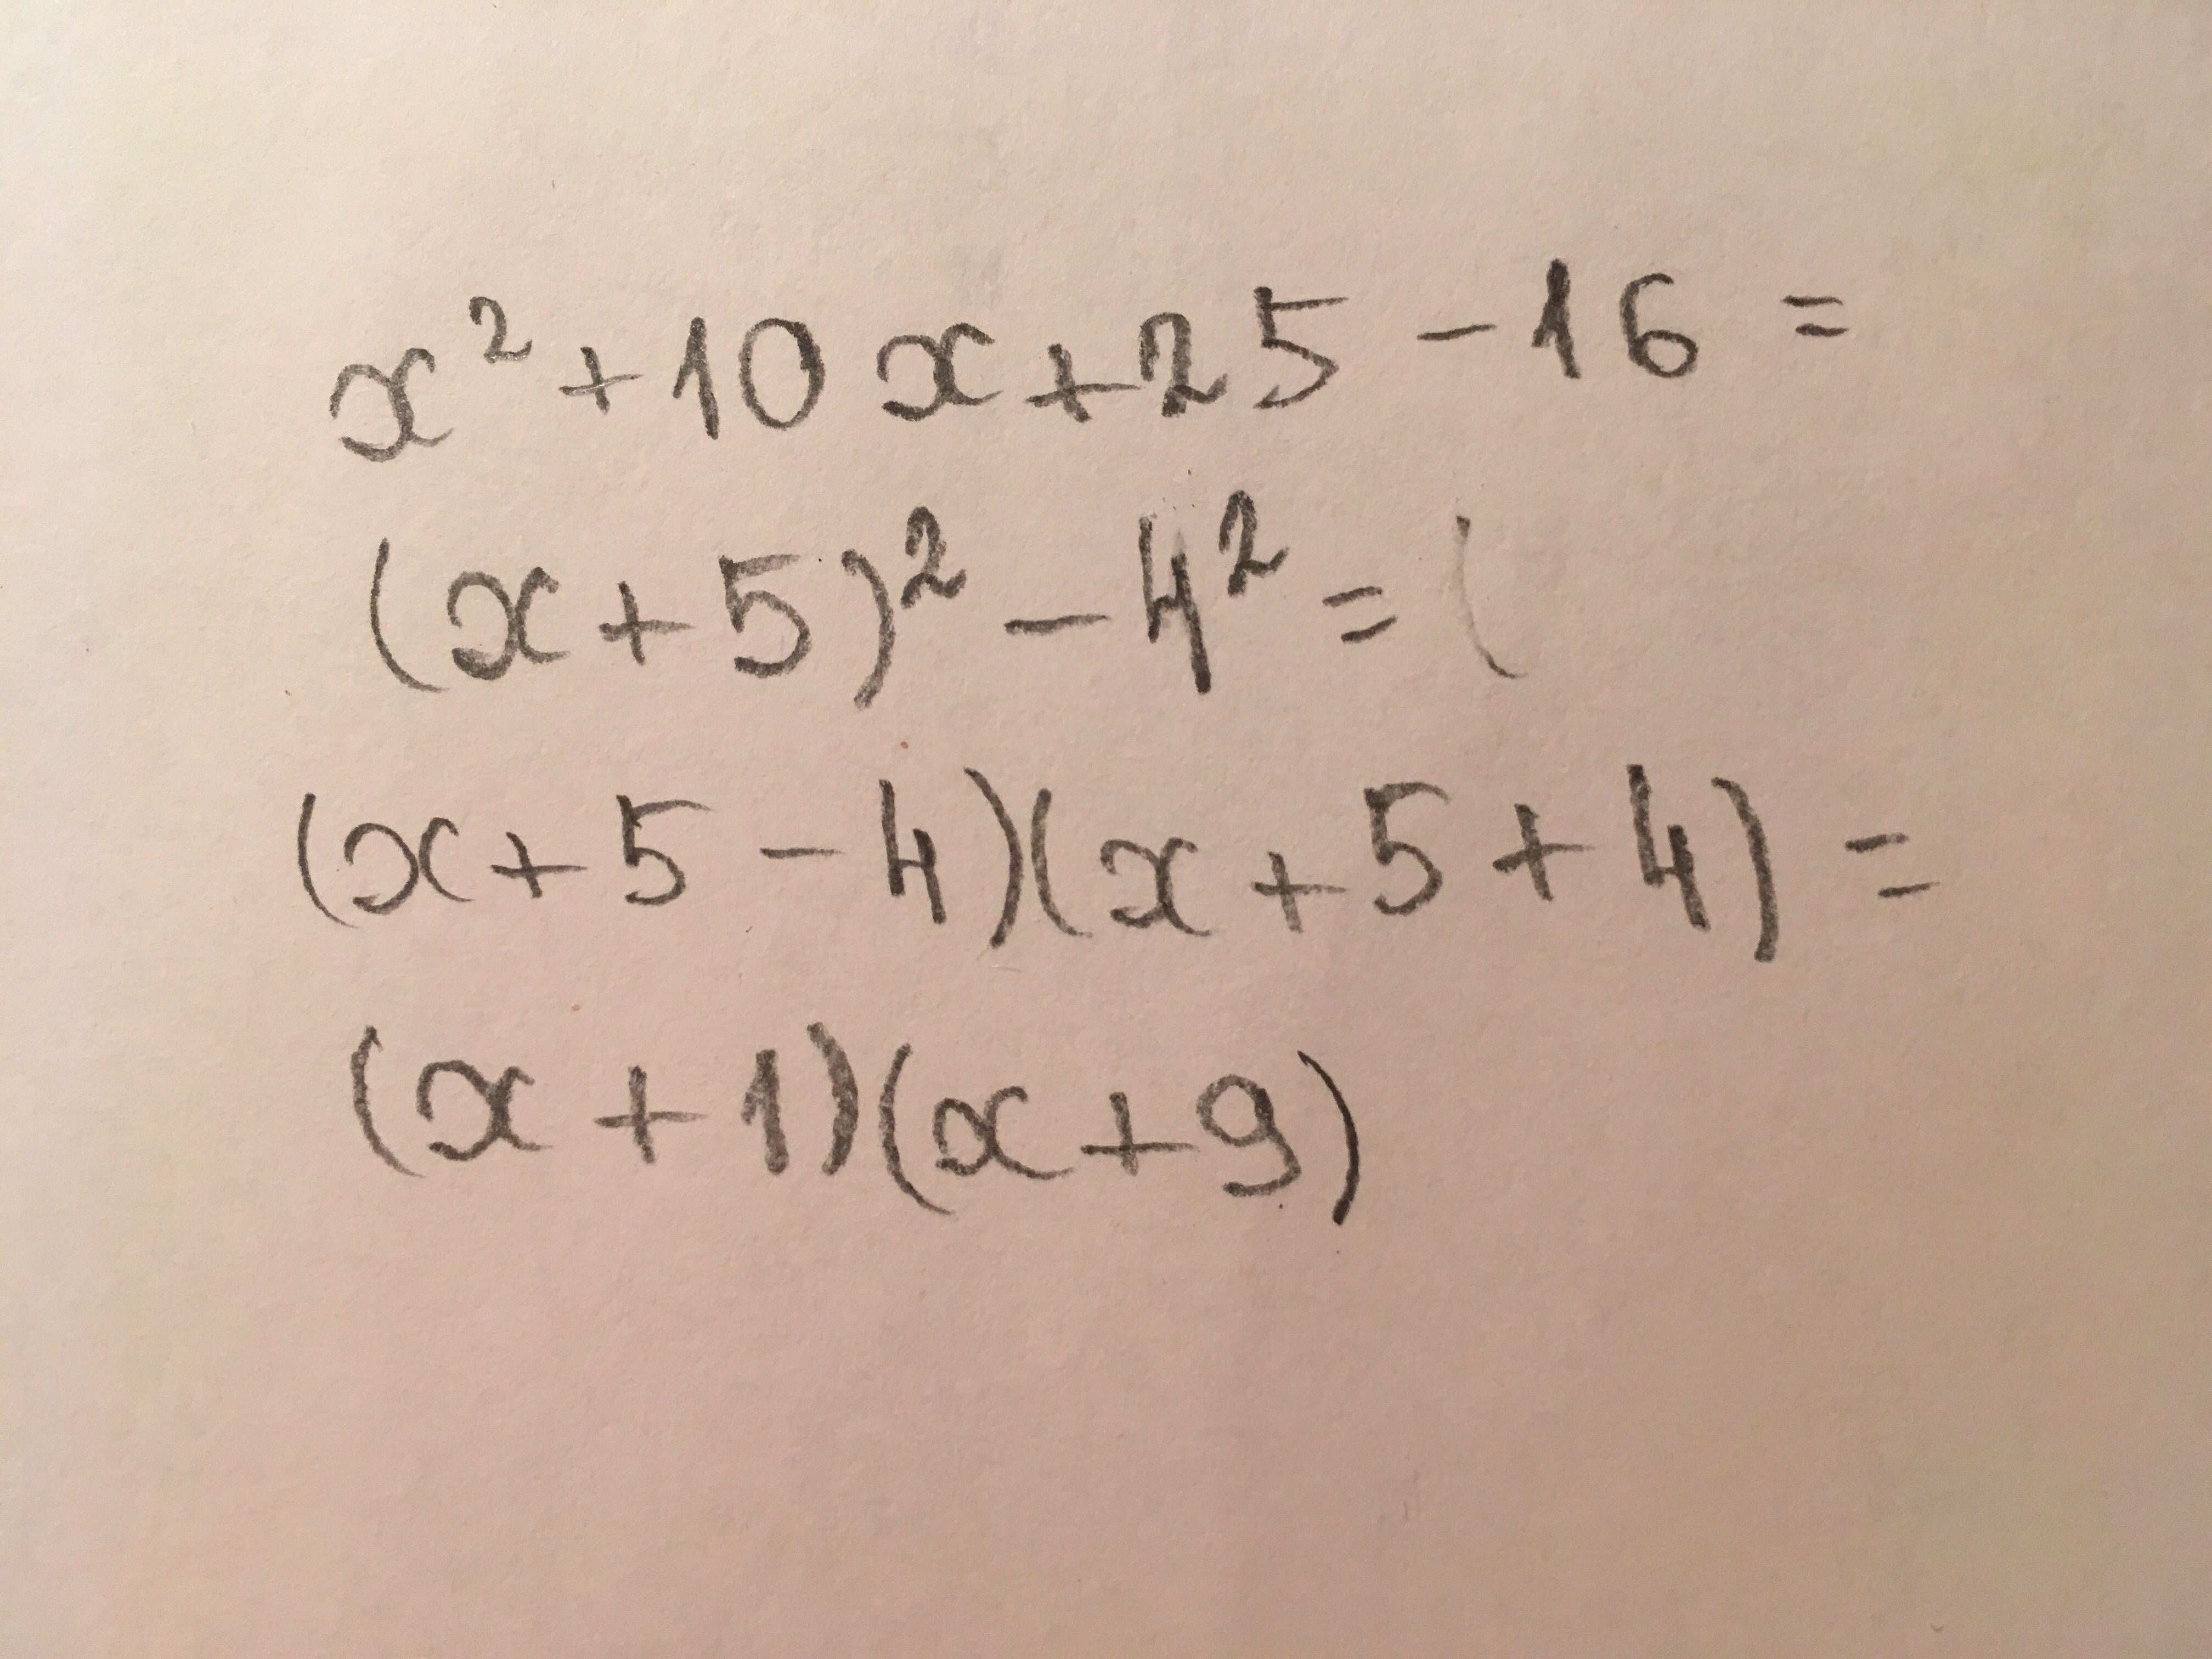 x² + 10x + 25 - 16 =
(x + 5)² - 4² = (
(x + 5 - 4)(x + 5 + 4) =
(x + 1)(x + 9)